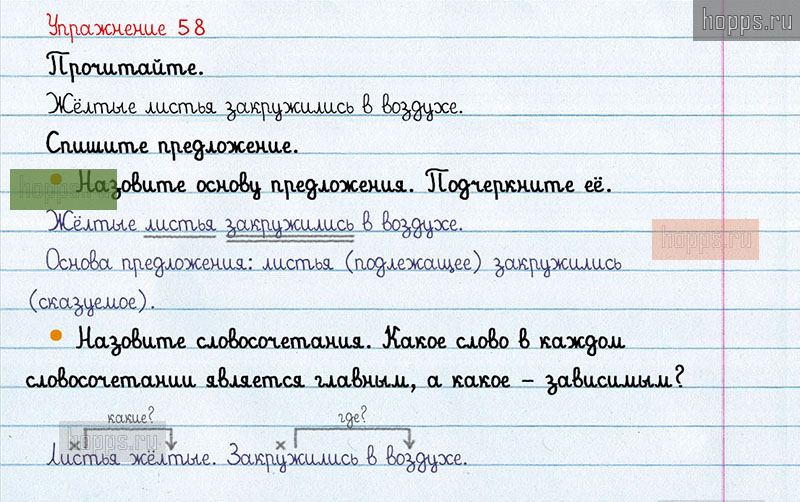 hopps.ru
Упражнение 58
Прочитайте.
Жёлтые листья закружились в воздухе.
Спишите предложение.
hopps.ru
• Назовите основу предложения. Подчеркните её.
Жёлтые листья закружились в воздухе.
hopps.ru
Основа предложения: листья (подлежащее) закружились
(сказуемое).
• Назовите словосочетания. Какое слово в каждом
словосочетании является главным, а какое – зависимым?
какие? где?
hopps.ru
Листья жёлтые. Закружились в воздухе.